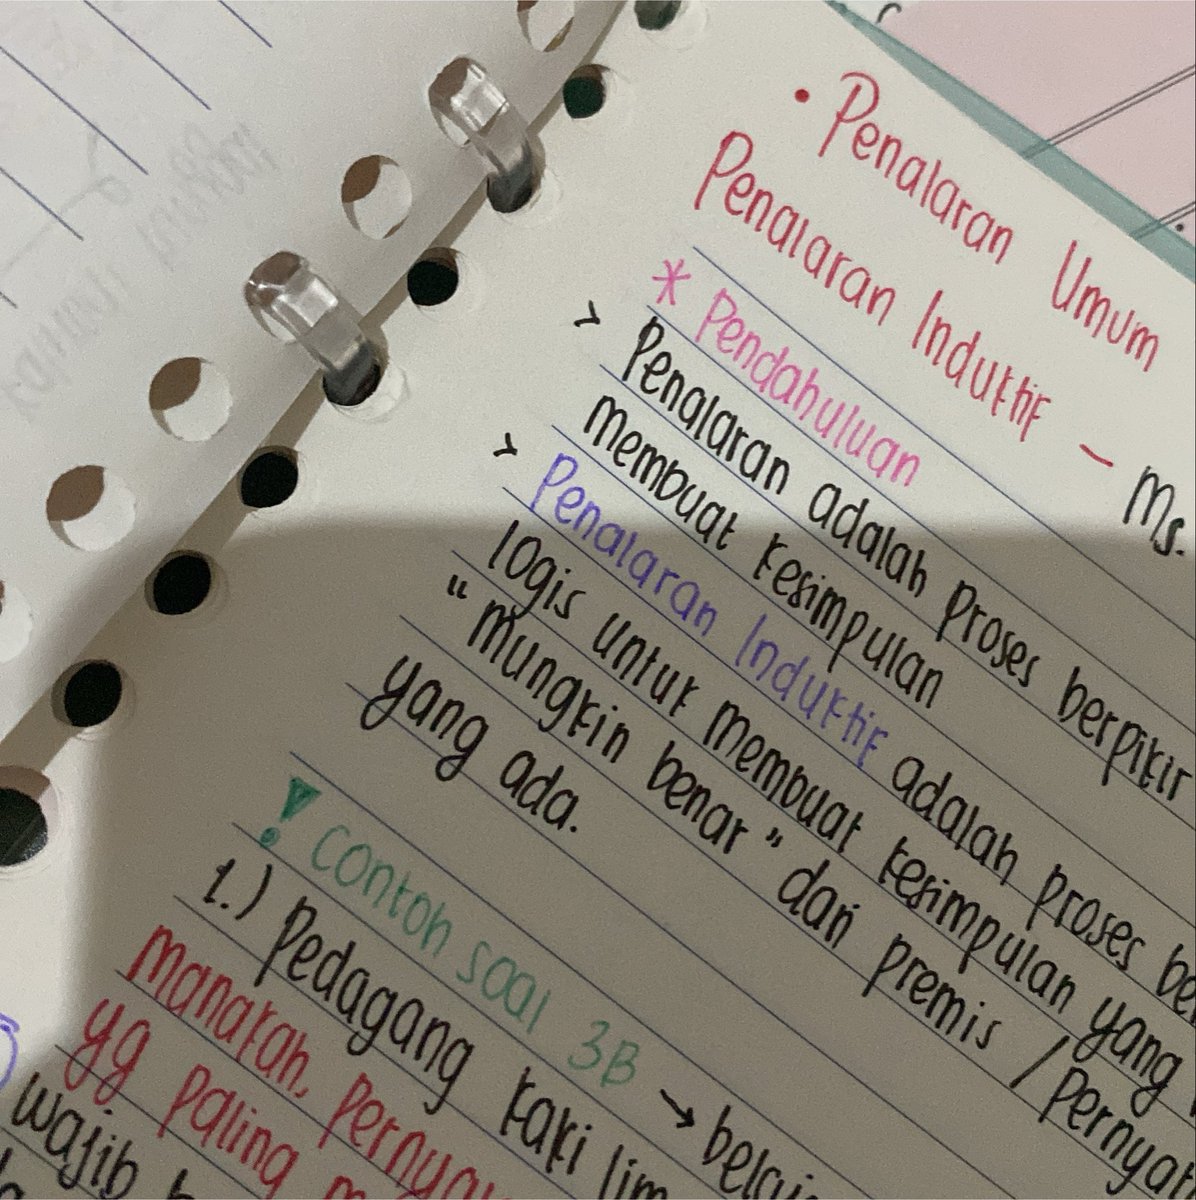 • Penalaran Umum
Penalaran Induktif – Ms.
* Pendahuluan
> Penalaran adalah proses berpikir
membuat kesimpulan
> Penalaran Induktif adalah proses be
logis untuk membuat kesimpulan yang
"mungkin benar" dari premis / Pernyat
yang ada.
! Contoh soal 3B → belaj
1.) Pedagang kaki lim
manakah, pernya
yg paling m
wajib b